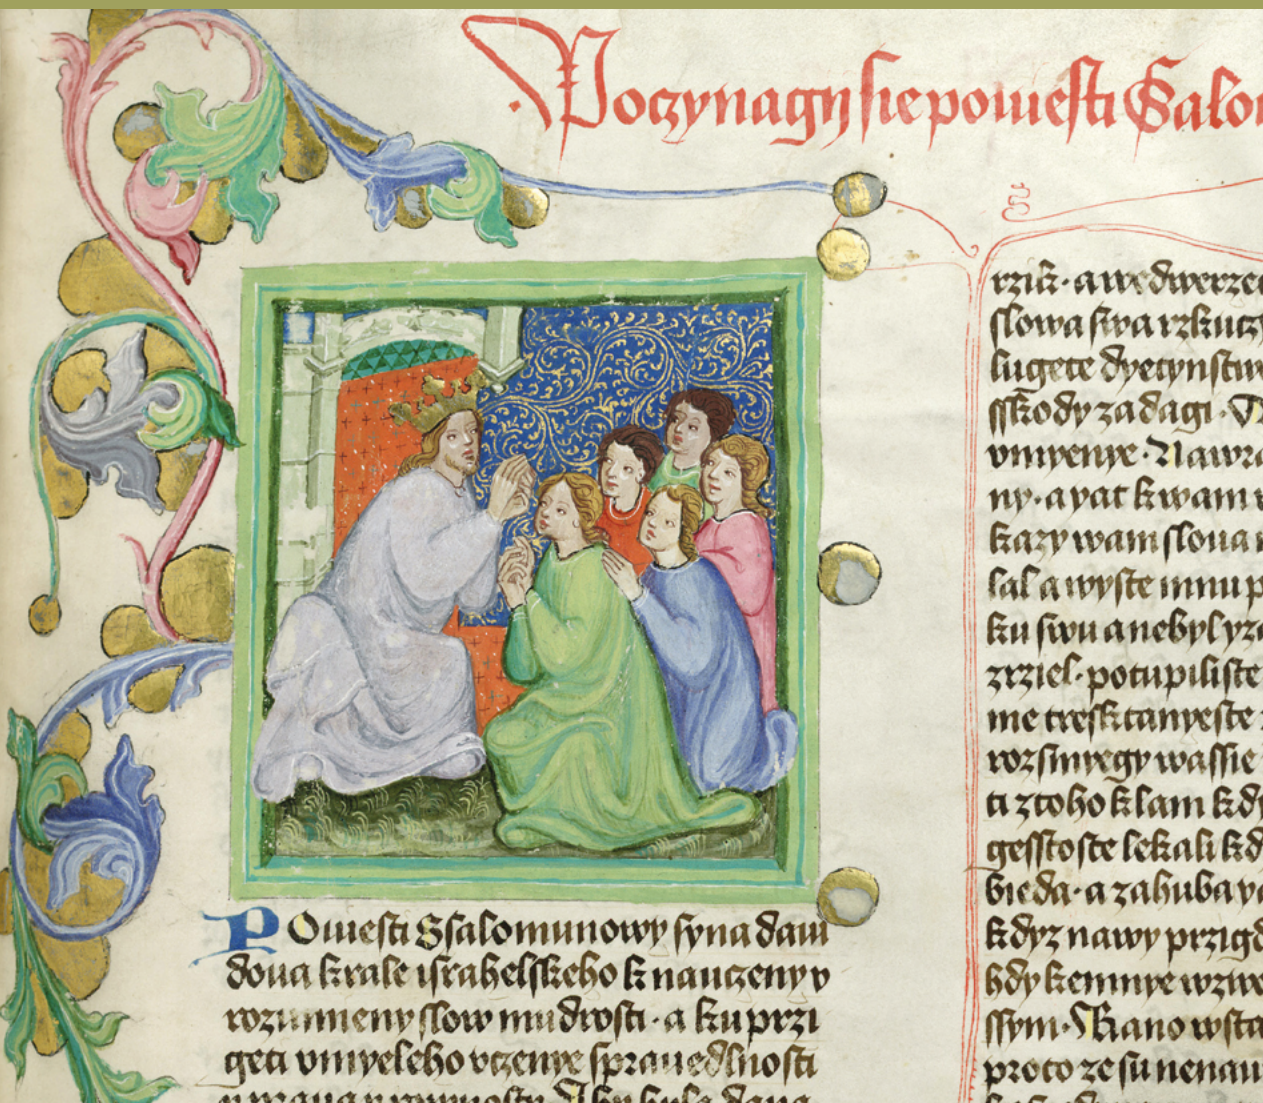 Poczynagy sie powiesti Salo
POwiesti Ssalomunowy syna dawi
dowa krale israhelskeho k nauczeny v
rozummeny slow mudrosti · a ku przi
geti vmyeleho vczenye sprauedlnosti
slowa swa rzkucz
lugete dyetynstw
sskody zadagi ·
vmyenye · Nawra
ny · a yat k wam
kazy wam slowa
lal a wyste mnu p
ku swu a nebyl yza
zrziel · potupiliste
me tresktanyeste
rozsmyegy wassie
ti z toho k lam kdy
gessto ste lekali kd
bieda · a zahuba
kdyz nawy przigd
hdy kemnye wzwo
ssym · Rano wsta
proto ze su nenau